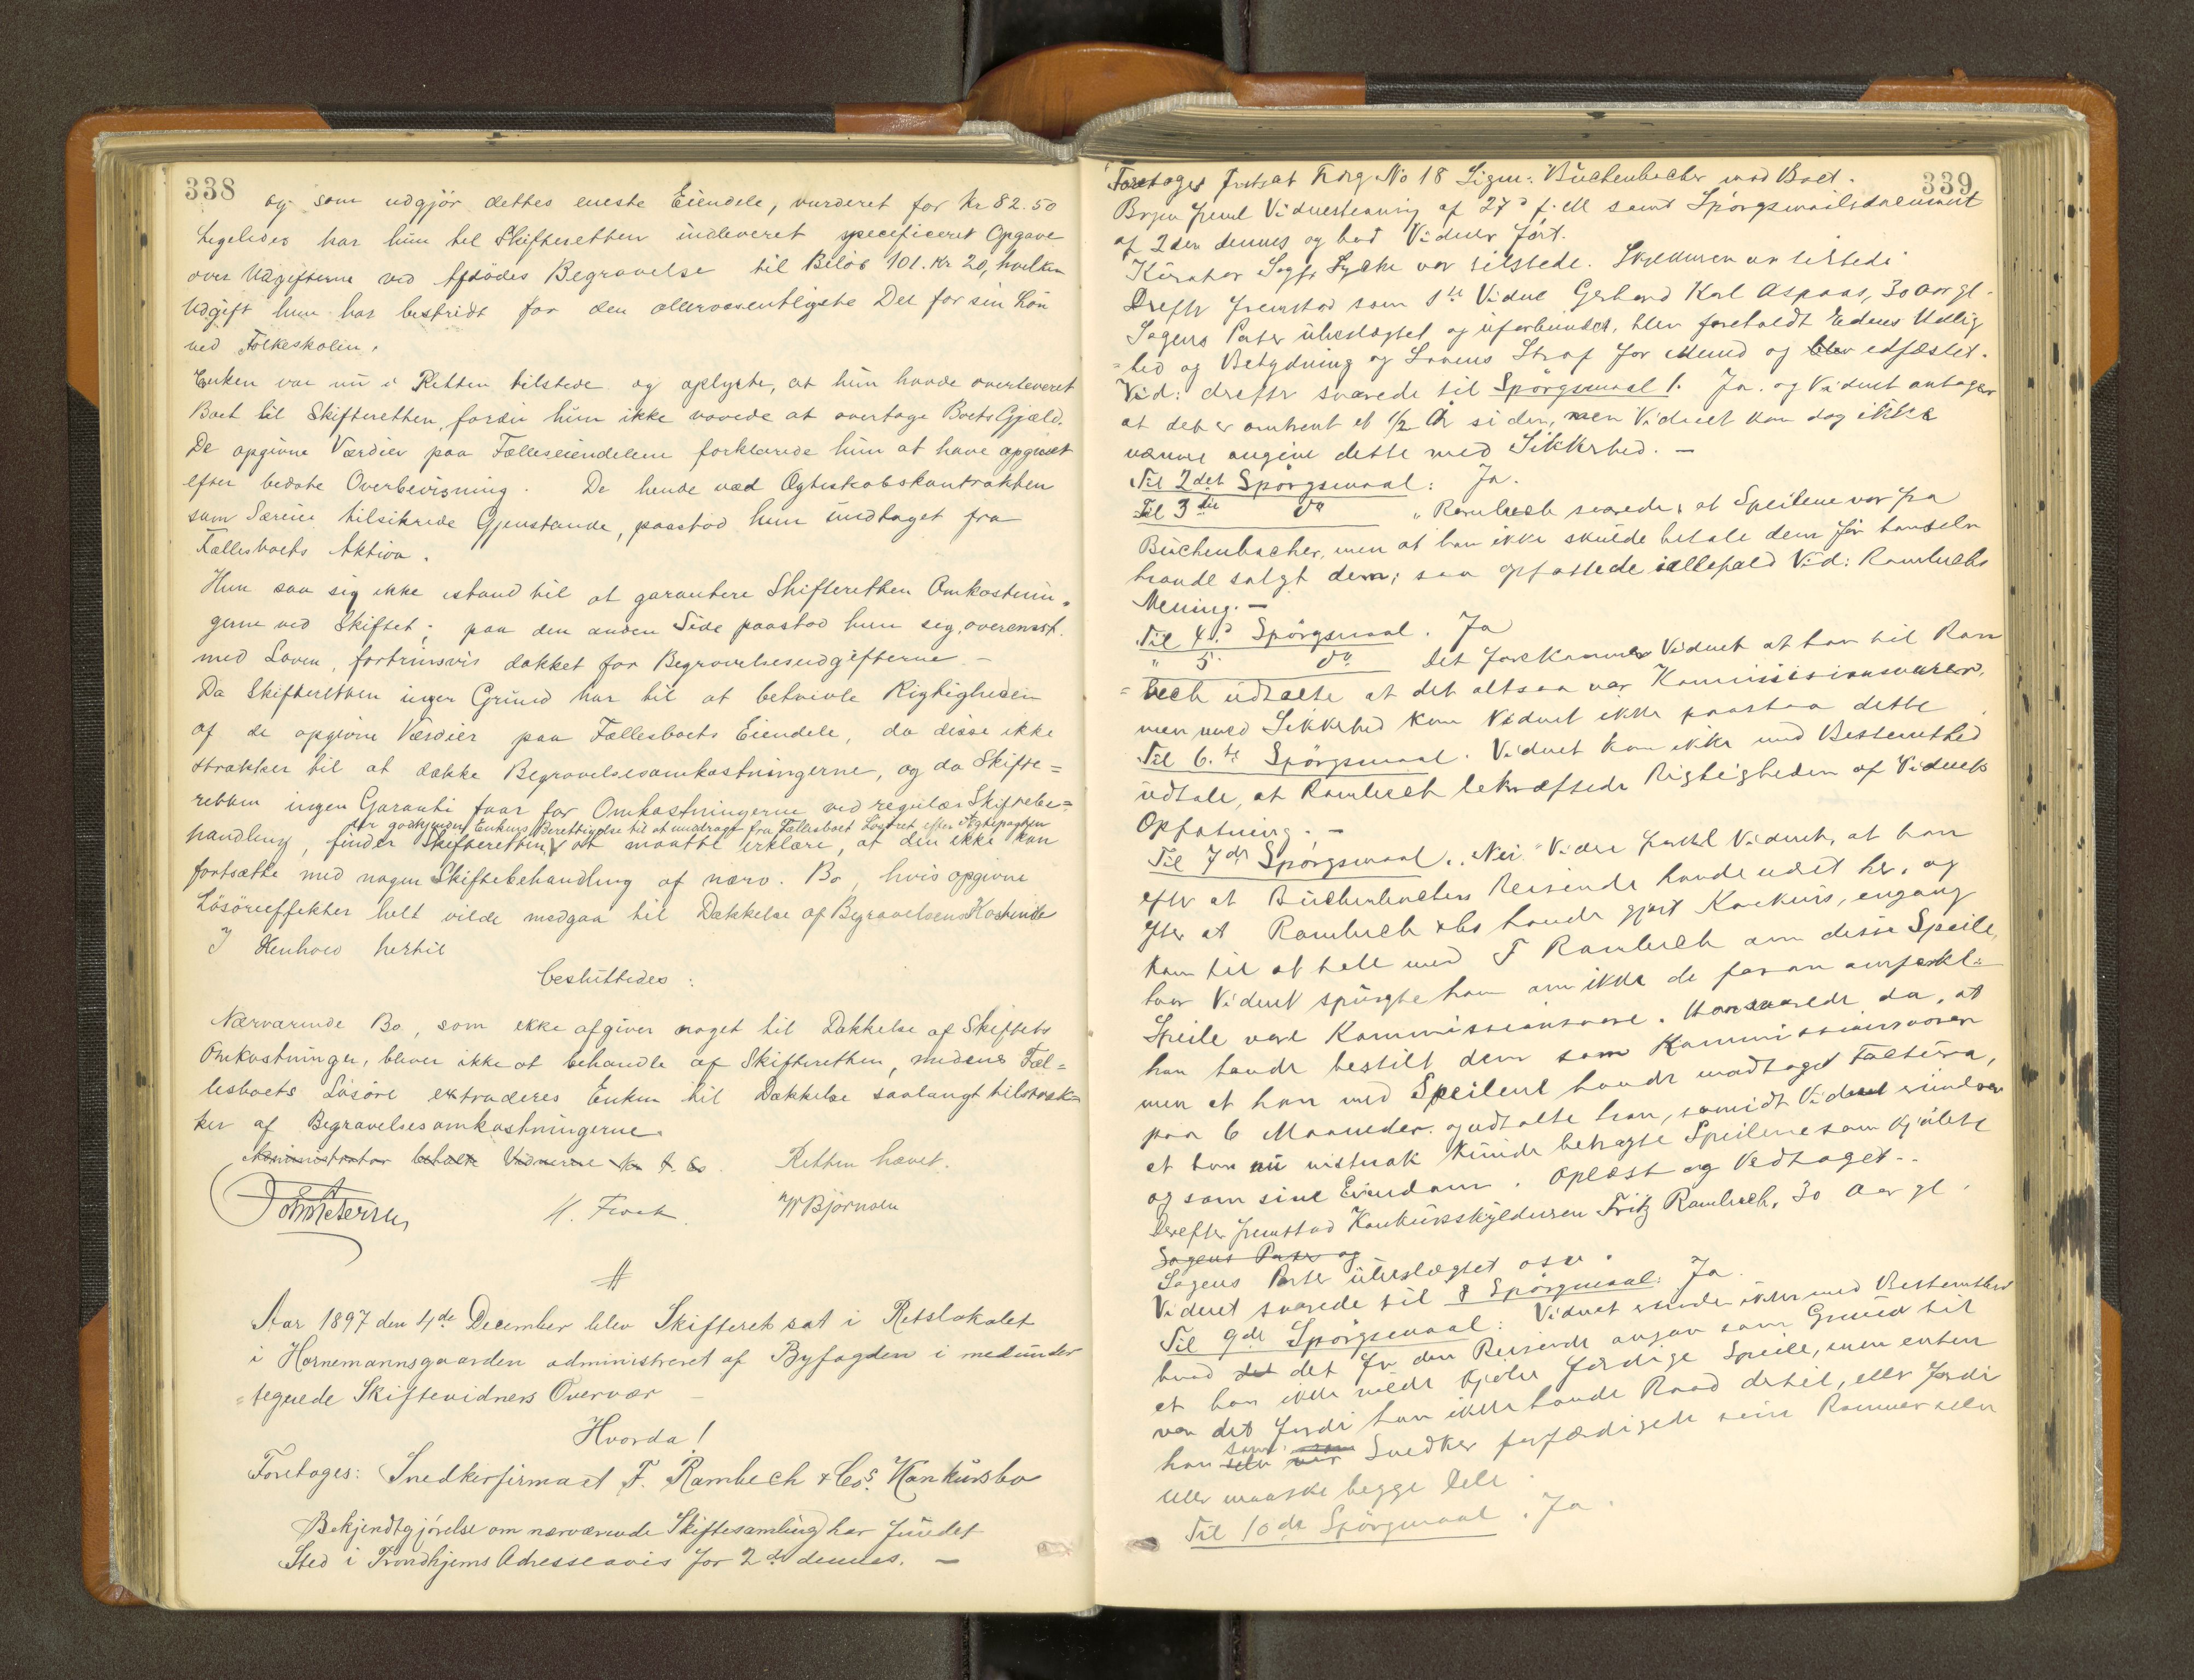 338
og som udgjör dettes eneste Eiendele, vurderet for Kr 82.50
Ligeledes har hun til Skifteretten indleveret specificeret Opgave
over Udgifterne ved Afdödes Begravelse til Beløb 101. Kr 20, hvilken
Udgift hun har bestridt for den allervæsentligste Del for sin Løn
ved Folkeskolen.
Enken var nu i Retten tilstede og oplyste, at hun havde overleveret
Boet til Skifteretten, fordi hun ikke vovede at overtage Boets Gjæld.
De opgivne Værdier paa Fælleseiendelene forklarede hun at have opgivet
efter bedste Overbevisning. De hende ved Ægteskabskontrakten
som Særeie tilsikrede Gjenstande, paastod hun undtaget fra
Fællesboets Aktiva.
Hun saa sig ikke istand til at garantere Skifteretten Omkostnin-
gerne ved Skiftet; paa den anden Side paastod hun sig, overensst.
med Loven, fortrinsvis dækket for Begravelsesudgifterne –
Da Skifteretten ingen Grund har til at betvivle Rigtigheden
af de opgivne Værdier paa Fællesboets Eiendele, da disse ikke
strækker til at dække Begravelsesomkostningerne, og da Skifte=
retten ingen Garanti faar for Omkostningerne ved regulær Skiftebe=
der godkjender Enkens Berettigelse til at unddrage fra Fællesboet Løsøret efter Ægtepagten
handling, finder Skifteretten, at maatte erklære, at den ikke kan
fortsætte med nogen Skiftebehandling af nærv. Bo, hvis opgivne
Lösöreeffekter helt vilde medgaa til Dækkelse af Begravelsens Kostende
I Henhold hertil
besluttedes:
Nærværende Bo, som ikke afgiver noget til Dækkelse af Skiftets
Omkostninger, bliver ikke at behandle af Skifteretten, medens Fæl=
lesboets Lösöre extraderes Enken til Dækkelse saalangt tilstræk-
ker af Begravelsesomkostningerne.
Administrator betalte Vidnerne Kr Retten hævet.
H. Fr W Björnsen
#
Aar 1897 den 4de December blev Skifteret sat i Retslokalet
i Hornemannsgaarden administreret af Byfogden i medunder
=tegnede Skiftevidners Overvær –
Hvorda!
Foretoges: Snedkerfirmaet F. Rambech & Cos. Konkursbo
Bekjendtgjörelse om nærværende Skiftesamling har fundet
Sted i Trondhjems Adresseavis for 2de dennes. –
339
Foretoges fortsat Krdg No 18 Sigm: Büchenbacher mod Boet.
Brgen freml Vidnestevning af 27d f. M samt Spörgsmaalsdokument
af 2den dennes og bad Vidner fört.
Kurator Sagf. Lycke var tilstede. Skyldneren var tilstede
Drefter fremstod som 1te Vidne Gerhard Karl Aspaas, 30 Aar gl.
Sagens Parter ubeslægtet og uforbunden, blev foreholdt Edens Hellig
=hed og Betydning og Lovens Straf for Mened og blev edfæstet.
Vid: drefter svarede til Spörgsmaal 1. Ja. og Vidnet antager
at det er omtrent et 1/2 År siden, men Vidnet kan dog ikke
nærme angive dette med Sikkerhed. –
Til 2det Spörgsmaal: Ja.
Til 3die do " Rambech svarede, at Speilene var fra
Büchenbacher, men at han ikke skulde betale dem för han selv
havde solgt dem; saa opfattede iallefald Vid: Rambechs
Mening. –
Til 4d Spörgsmaal. Ja
" 5. do Det forekommer Vidnet at han til Ram
=bech udtalte at det altsaa var Kommissionsvarer,
men med Sikkerhed kan Vidnet ikke paastaa dette
Til 6.te Spörgsmaal. Vidnet kan ikke med Bestemthed
udtale, at Rambech bekræftede Rigtigheden af Vidnets
Opfatning. –
Til 7de Spörgsmaal. "Nei." Videre forkl Vidnet, at han
efter at Büchenbachers Reisende havde været her, og
efter at Rambech & Co havde gjort Konkurs, engang
kom til at tale med F Rambech om disse Speile,
hvor Vidnet spurgte ham om ikke de foran omforkl:
Speile vare Kommissionsvare. Han svarede da, at
han havde bestilt dem som Kommissionsvarer
men at han med Speilene havde modtaget Factura,
paa 6 Maaneder. og udtalte han, saavidt Vidnet erindrer
at han nu nistnok kunde betragte Speilene som kjöbte
og som sine Eiendom. Oplæst og Vedtaget. –
Derefter fremstod Konkursskyldneren Fritz Rambech, 30 Aar gl.
Sagens Parter og
Sagens Parter ubeslægtet osv.
Vidnet svarede til 8 Spörgsmaal: Ja.
Til 9de Spörgsmaal: Vidnet erindrer ikke med Bestemthed
hvad det det for den Reisende angav som Grund til
at han ikke vilde kjöbe færdige Speile, men enten
var det fordi han ikke havde Raad dertil, eller fordi
han selv var som Snedker forfærdigede sine Rammer selv
eller maaske begge Dele
Til 10de Spörgsmaal. Ja.